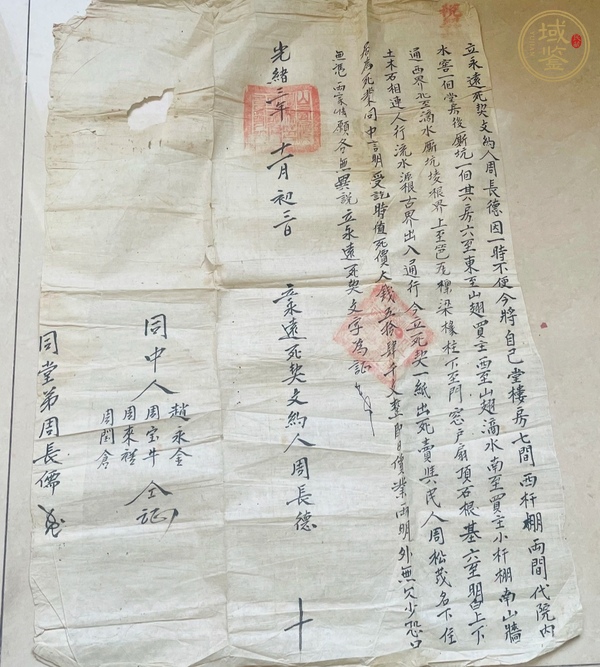 立永遠死契文約人周長德因一時不便今將自己堂樓房七間西杆棚兩間代院內
水窖一個堂房後廝坑一個其房六至東至山翅買主西至山翅滴水南至買主小杆棚南山牆
通西界北至滴水廝坑堎根界上至瓦棵梁椽柱下至門窓户扇頂石根基六至明白上下
土木石相連人行流水派根古界出入通行今立死契一紙出死賣與民人周松茂名下住
居為死業同中言明受訖時值死價大錢五拾肆千文整即日價業両明外無欠少恐口
無憑両家情願各無異說立永遠死契文字為証
光緒三年十一月初三日
立永遠死契文約人周長德 十
同中人
趙永金
周宝牛
周來禎
周閏倉
仝証
同堂弟周長儒
稅
域鑒